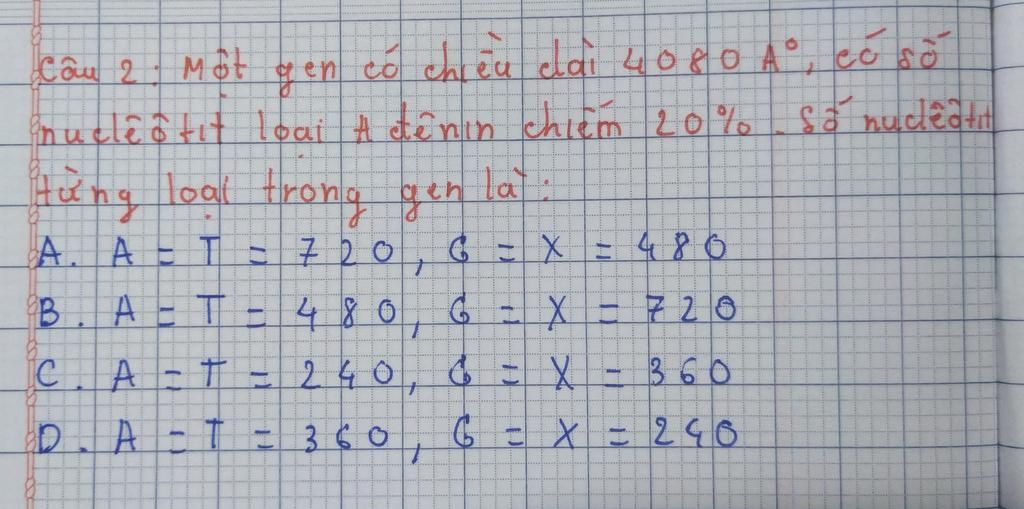 Câu 2: Một gen có chiều dài 4080 A°, có số
nuclêôtit loại Ađênin chiếm 20%. Số nuclêôtit
từng loại trong gen là:
A. A = T = 720, G = X = 480
B. A = T = 480, G = X = 720
C. A = T = 240, G = X = 360
D. A = T = 360, G = X = 240